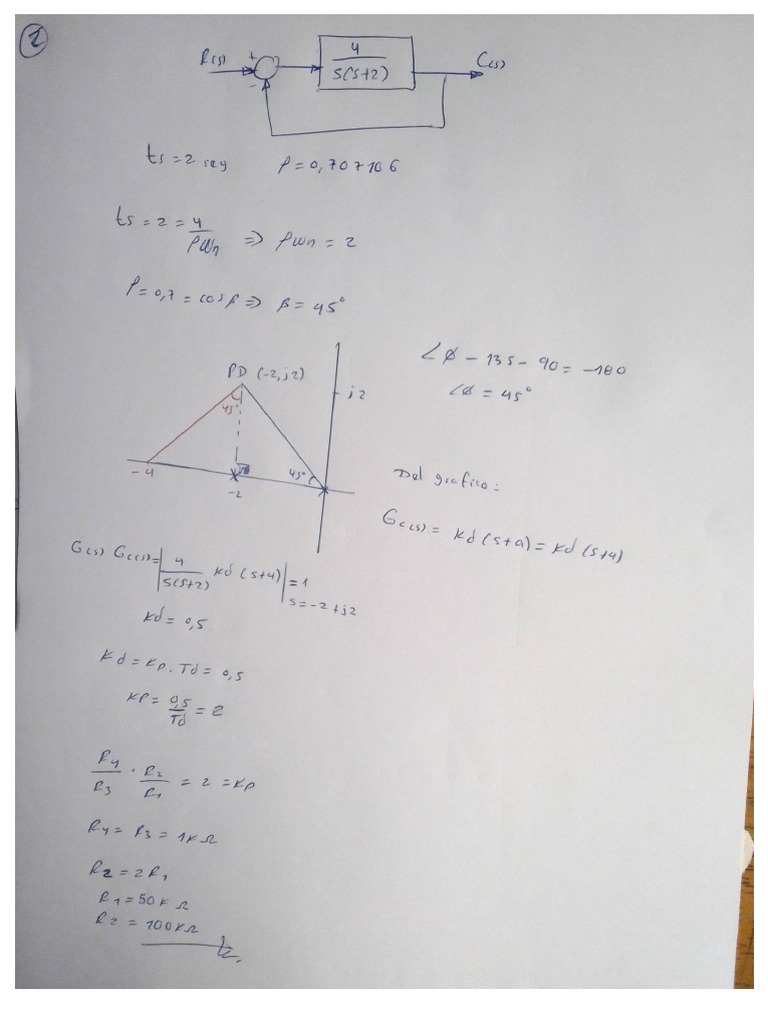 1
R(s) + - 4 / s(s+2) C(s)
ts = 2 seg ρ = 0,707106
ts = 2 = 4/ρωn => ρωn = 2
ρ = 0,7 = cos β => β = 45°
∠ø - 135 - 90 = -180
∠ø = 45°
PD (-2, j2)
j2
45°
45°
-4
-2
Del grafico:
Gc(s) = Kd (s+a) = Kd (s+4)
G(s) Gc(s) = | 4/s(s+2) Kd (s+4) | = 1
s = -2 + j2
Kd = 0,5
Kd = Kp . Td = 0,5
KP = 0,5/Td = 2
R4/R3 . R2/R1 = 2 = Kp
R4 = R3 = 1K Ω
R2 = 2R1
R1 = 50K Ω
R2 = 100K Ω